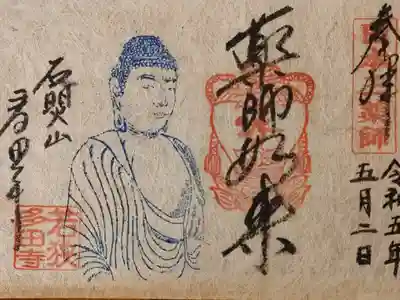 奉拝
令和五年
五月二日
薬師如来
石照山
多田寺
若狭
多田寺